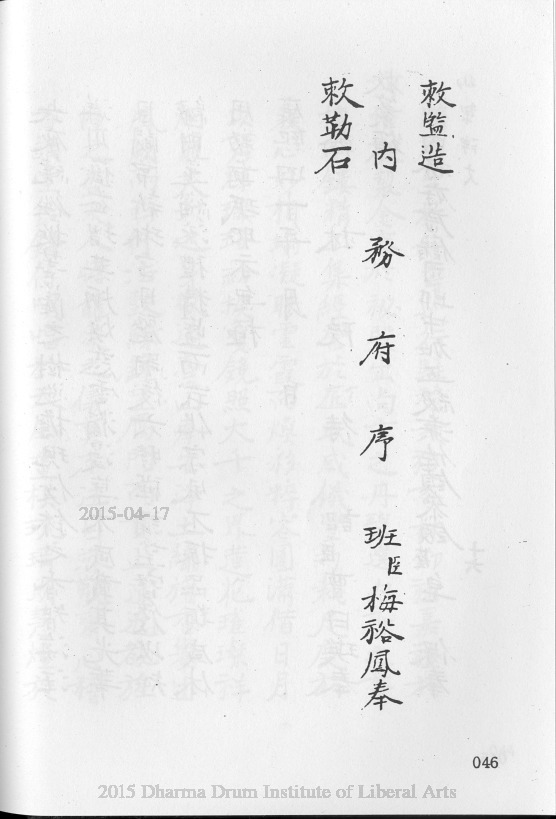 敕監造
內務府序班臣梅裕鳳奉
敕勒石
2015-04-17
046
2015 Dharma Drum Institute of Liberal Arts